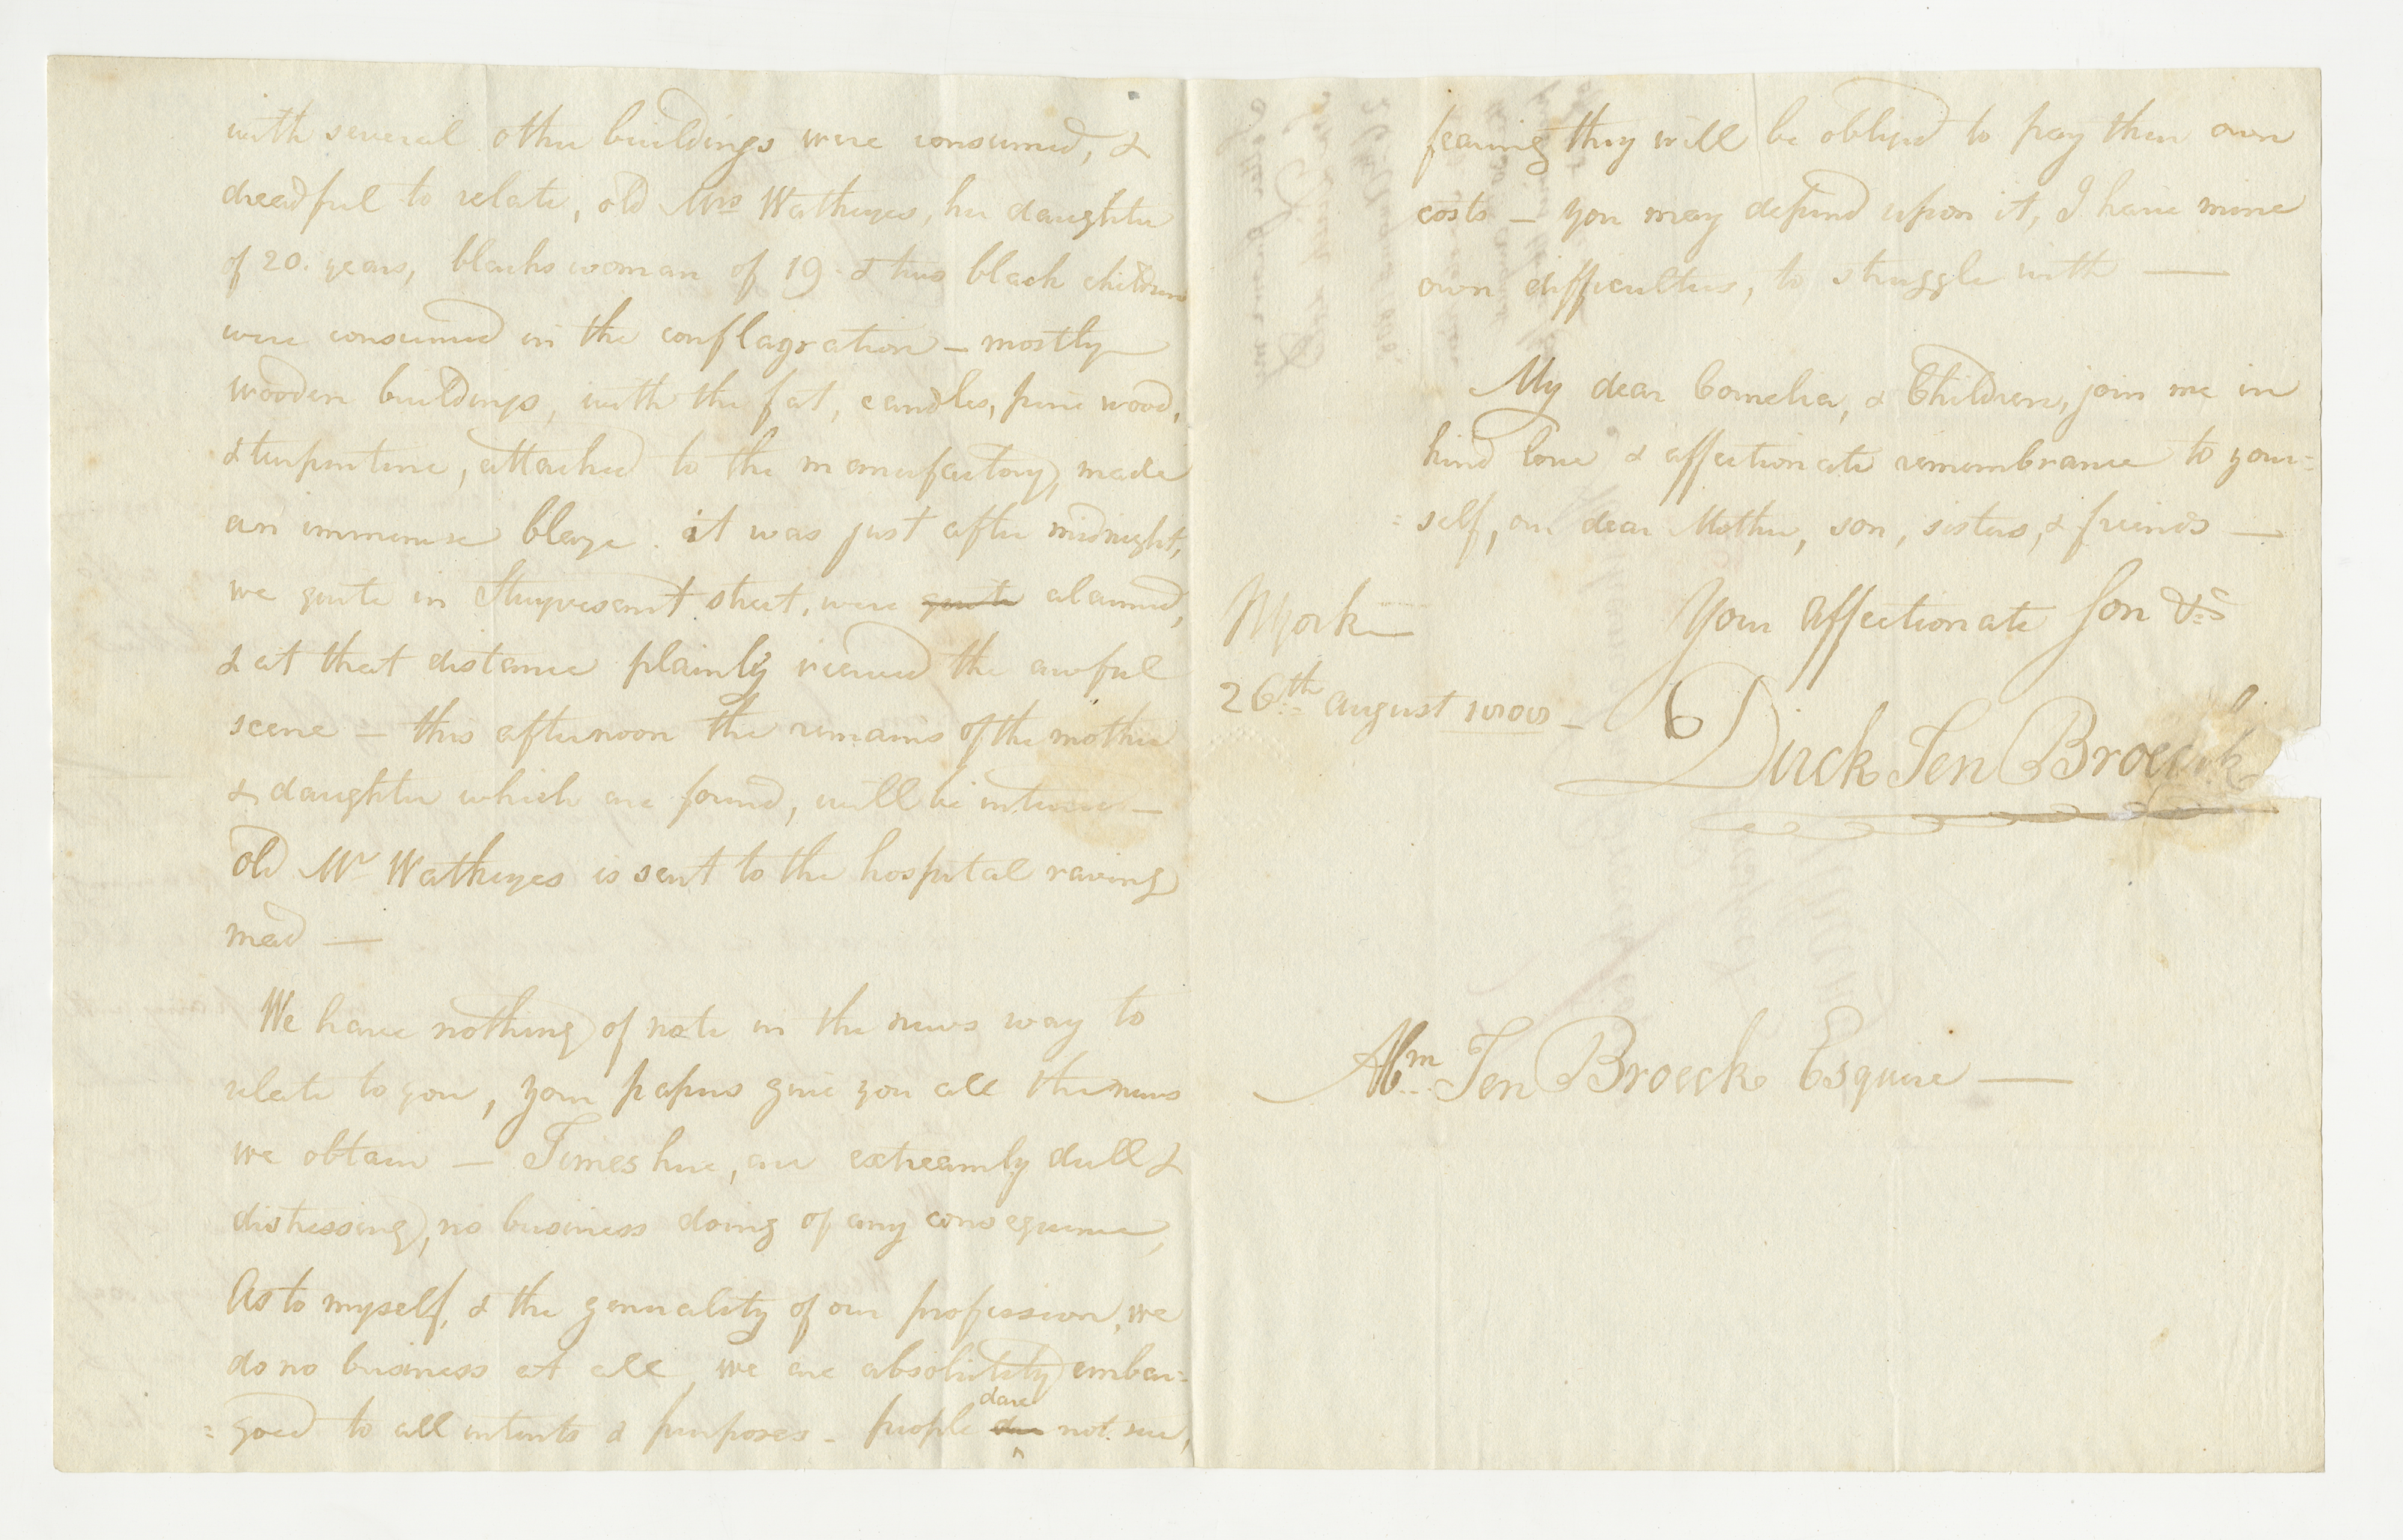 with several other buildings were consumed, &
dreadful to relate, old Mrs Watkeyes, her daughter
of 20. years, blacks woman of 19 - & two black children
were consumed in the conflagration — mostly
wooden buildings, with the fat, candles, pine wood,
& turpentine, attached to the manufactory, made
an immense blaze. it was just after midnight,
we quite in Stuyvesant street, were quite alarmed,
& at that distance plainly viewed the awful
scene — this afternoon the remains of the mother
& daughter which are found, will be
old Mr Watkeyes is sent to the hospital raving
mad —
We have nothing of note in the news way to
relate to you, your papers give you all the news
we obtain — Times here, are extreamly dull &
distressing, no business doing of any consequence,
As to myself, & the generality of our profession, we
do no business at all, we are absolutely embar=
=goed to all intents & purposes - people dare not sue,
fearing they will be obliged to pay their own
costs — you may depend upon it, I have mine
own difficulties, to struggle with —
My dear Cornelia, & Children, join me in
kind love & affectionate remembrance to your=
=self, our dear Mother, son, sisters, & friends —
Your affectionate Son &c
NYork —
26th august 1808 —
Dirck Ten Broeck
Abm Ten Broeck Esquire —